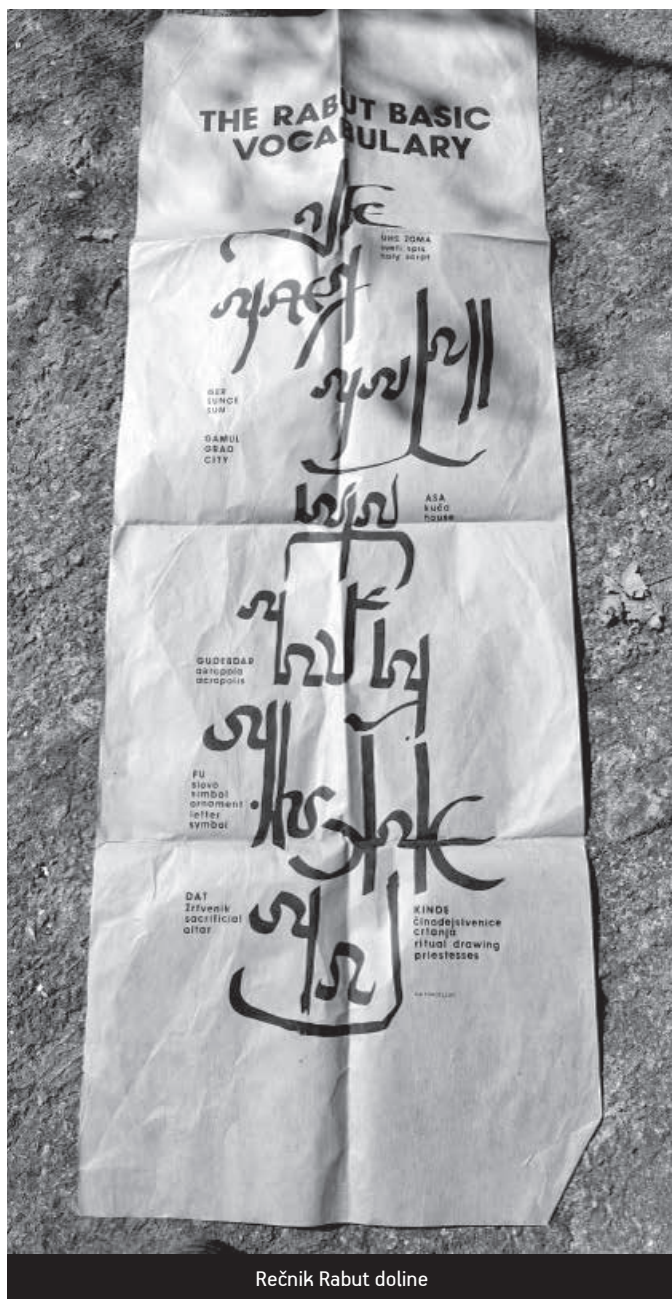 THE RABUT BASIC
VOCABULARY
UHS ZOMA
sveti spis
holy script
GER
SUNCE
SUN
GAMUL
GRAD
CITY
ASA
kuća
house
GUDESDAR
akropola
acropolis
FU
slovo
simbol
ornament
letter
symbol
DAT
žrtvenik
sacrificial
altar
KINDE
činodejstvenice
crtanja
ritual drawing
priestesses
Rečnik Rabut doline